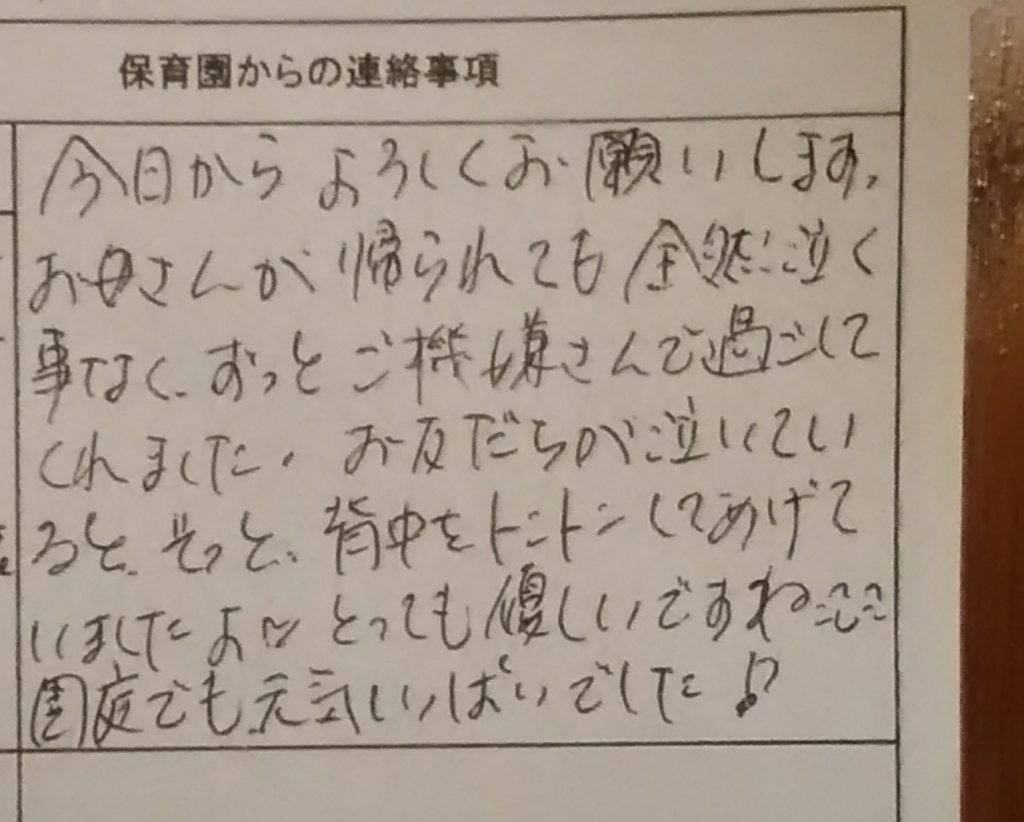 保育園からの連絡事項
今日からよろしくお願いします。
お母さんが帰られても全然泣く
事なく、ずっとご機嫌さんで過ごして
くれました。お友だちが泣いてい
ると、そっと、背中をトントンしてあげて
いましたよ♡とっても優しいですね
園庭でも元気いっぱいでした♪